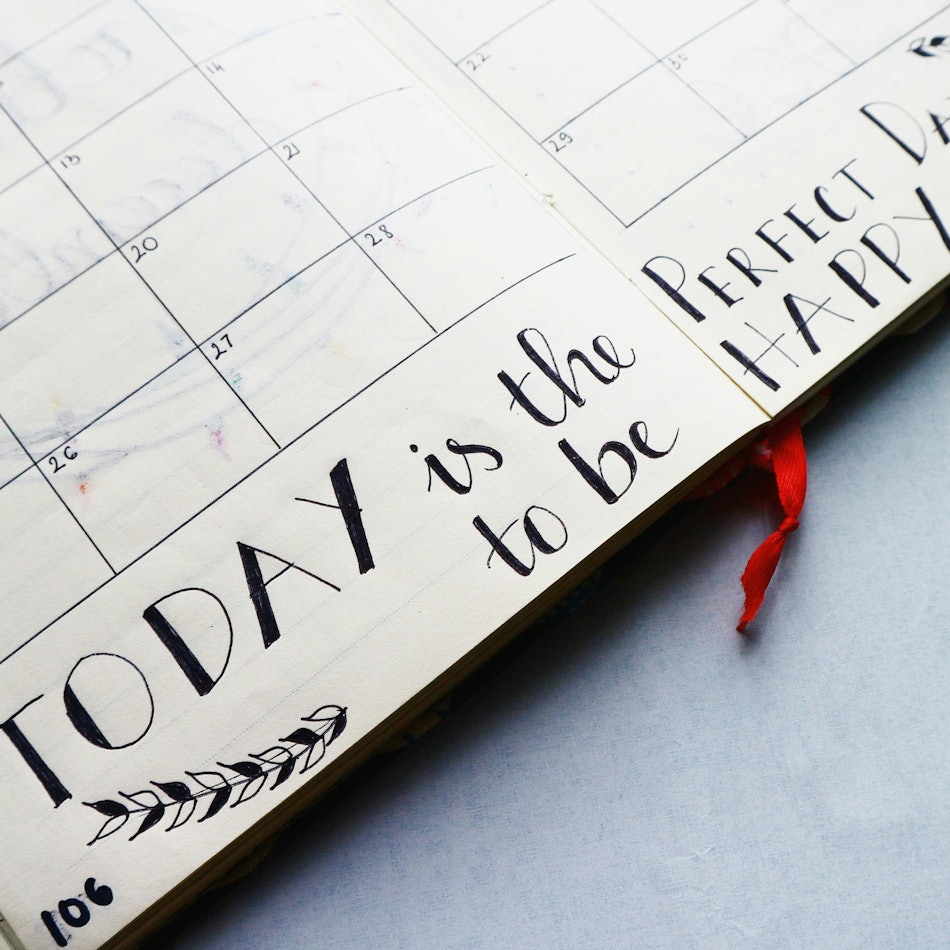 14
13
21
20
28
27
26
22
30
29
TODAY is the
to be
PERFECT DA
HAPPY
106